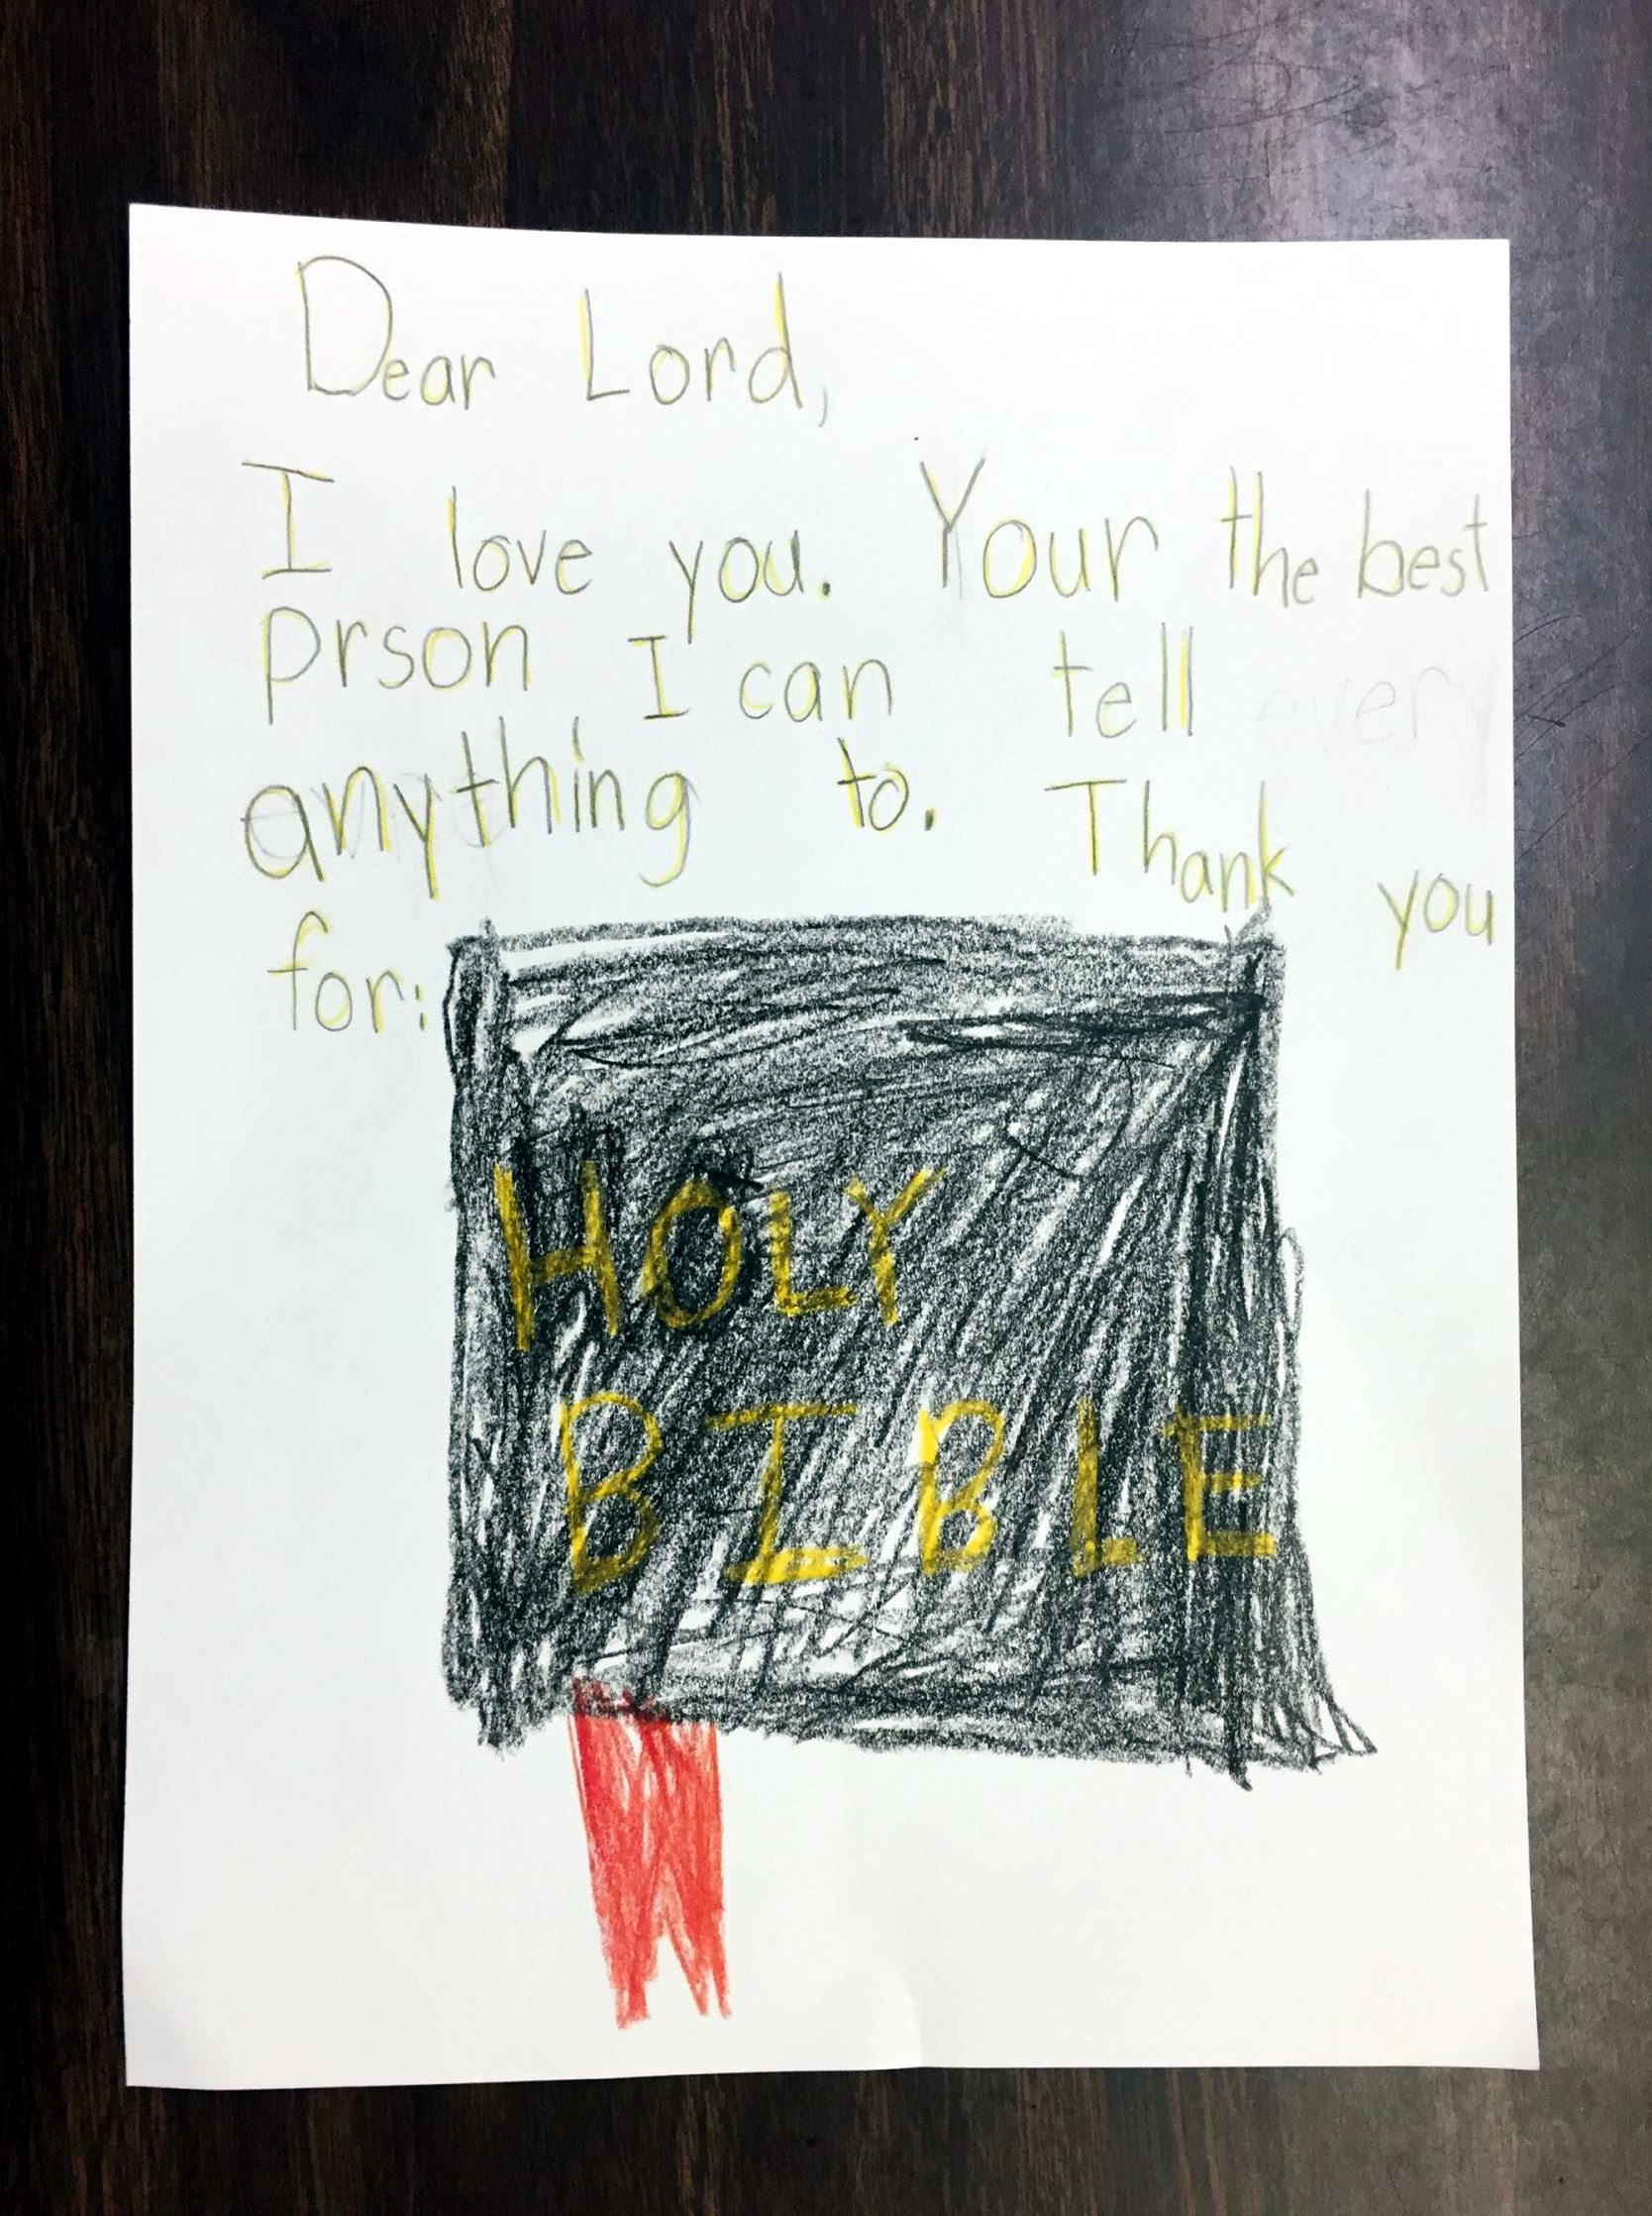 Dear Lord,
I love you. Your the best
prson I can tell
anything to. Thank you
for:
HOLY
BIBLE